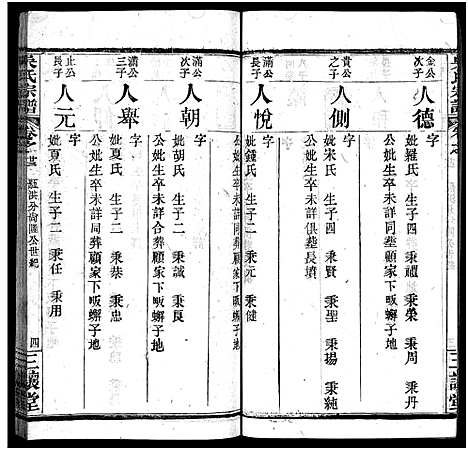 吳氏宗譜
卷之
三讓堂
金公次子
人德
字
妣羅氏 生子四 秉禮 秉榮 秉周 秉丹
公妣生卒未詳同塟顧家下畈蠏子地
貴公之子
人側
字
妣宋氏 生子四 秉賢 秉瑒 秉純
公妣生卒未詳俱塟長墳
滿公長子
人悅
字
妣鍾氏 生子二 秉元 秉健
滿公次子
人朝
字
妣胡氏 生子二 秉誠 秉良
公妣生卒未詳合葬顧家下畈蠏子地
滿公三子
人舉
字
妣夏氏 生子二 秉恭 秉忠
公妣生卒未詳同葬顧家下畈蠏子地
止公長子
人元
字
妣夏氏 生子二 秉任 秉用
吳氏宗譜
卷之
分尚 公世紀
四
三讓堂